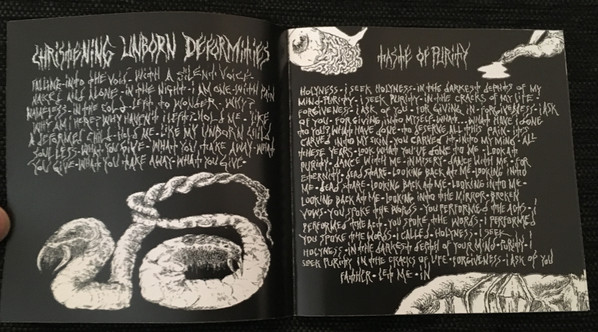 CHRISTENING UNBORN DEFORMITIES
FALLING INTO THE VOID · WITH A SILENT VOICE ·
NAKED ALL ALONE · IN THE NIGHT · I AM ONE WITH PAIN
NAMELESS · IN THE COLD · LEFT TO WONDER · WHY?
WHY AM I HERE · WHY HAVEN'T I LEFT · HOLD ME · LIKE
A DEFORMED CHILD · HOLD ME · LIKE MY UNBORN CHILD
SOULLESS · WHAT YOU GIVE · WHAT YOU TAKE AWAY · WHAT
YOU GIVE · WHAT YOU TAKE AWAY · WHAT YOU GIVE ·
TASTE OF PURITY
HOLYNESS · I SEEK HOLYNESS · IN THE DARKEST DEPTHS OF MY
MIND · PURITY · I SEEK PURITY · IN THE CRACKS OF MY LIFE ·
FORGIVENESS · I ASK OF YOU · FOR GIVING · FORGIVENESS · I ASK
OF YOU · FOR GIVING INTO MYSELF · WHAT · WHAT HAVE I DONE
TO YOU? WHAT HAVE I DONE · TO DESERVE ALL THIS PAIN · IT'S
CARVED INTO MY SKIN · YOU CARVED IT INTO MY MIND · ALL
THESE YEARS · LOOK WHAT YOU'VE DONE TO ME · LOOK AT
PURITY · DANCE WITH ME · IN MISERY · DANCE WITH ME · FOR
ETERNITY · DEAD STARE · LOOKING BACK AT ME · LOOKING INTO
ME · DEAD STARE · LOOKING BACK AT ME · LOOKING INTO ME ·
LOOKING BACK AT ME · LOOKING INTO THE MIRROR · BROKEN
VOWS · YOU SPOKE THE WORDS · YOU PERFORMED THE ACTS · I
PERFORMED THE ACT · YOU SPOKE THE WORDS · I PERFORMED
YOU SPOKE THE WORDS · CALLED · HOLYNESS · I SEEK
HOLYNESS · IN THE DARKEST DEPTH OF YOUR MIND · PURITY · I
SEEK PURITY IN THE CRACKS OF LIFE · FORGIVENESS · I ASK OF YOU
FATHER · LET ME · IN